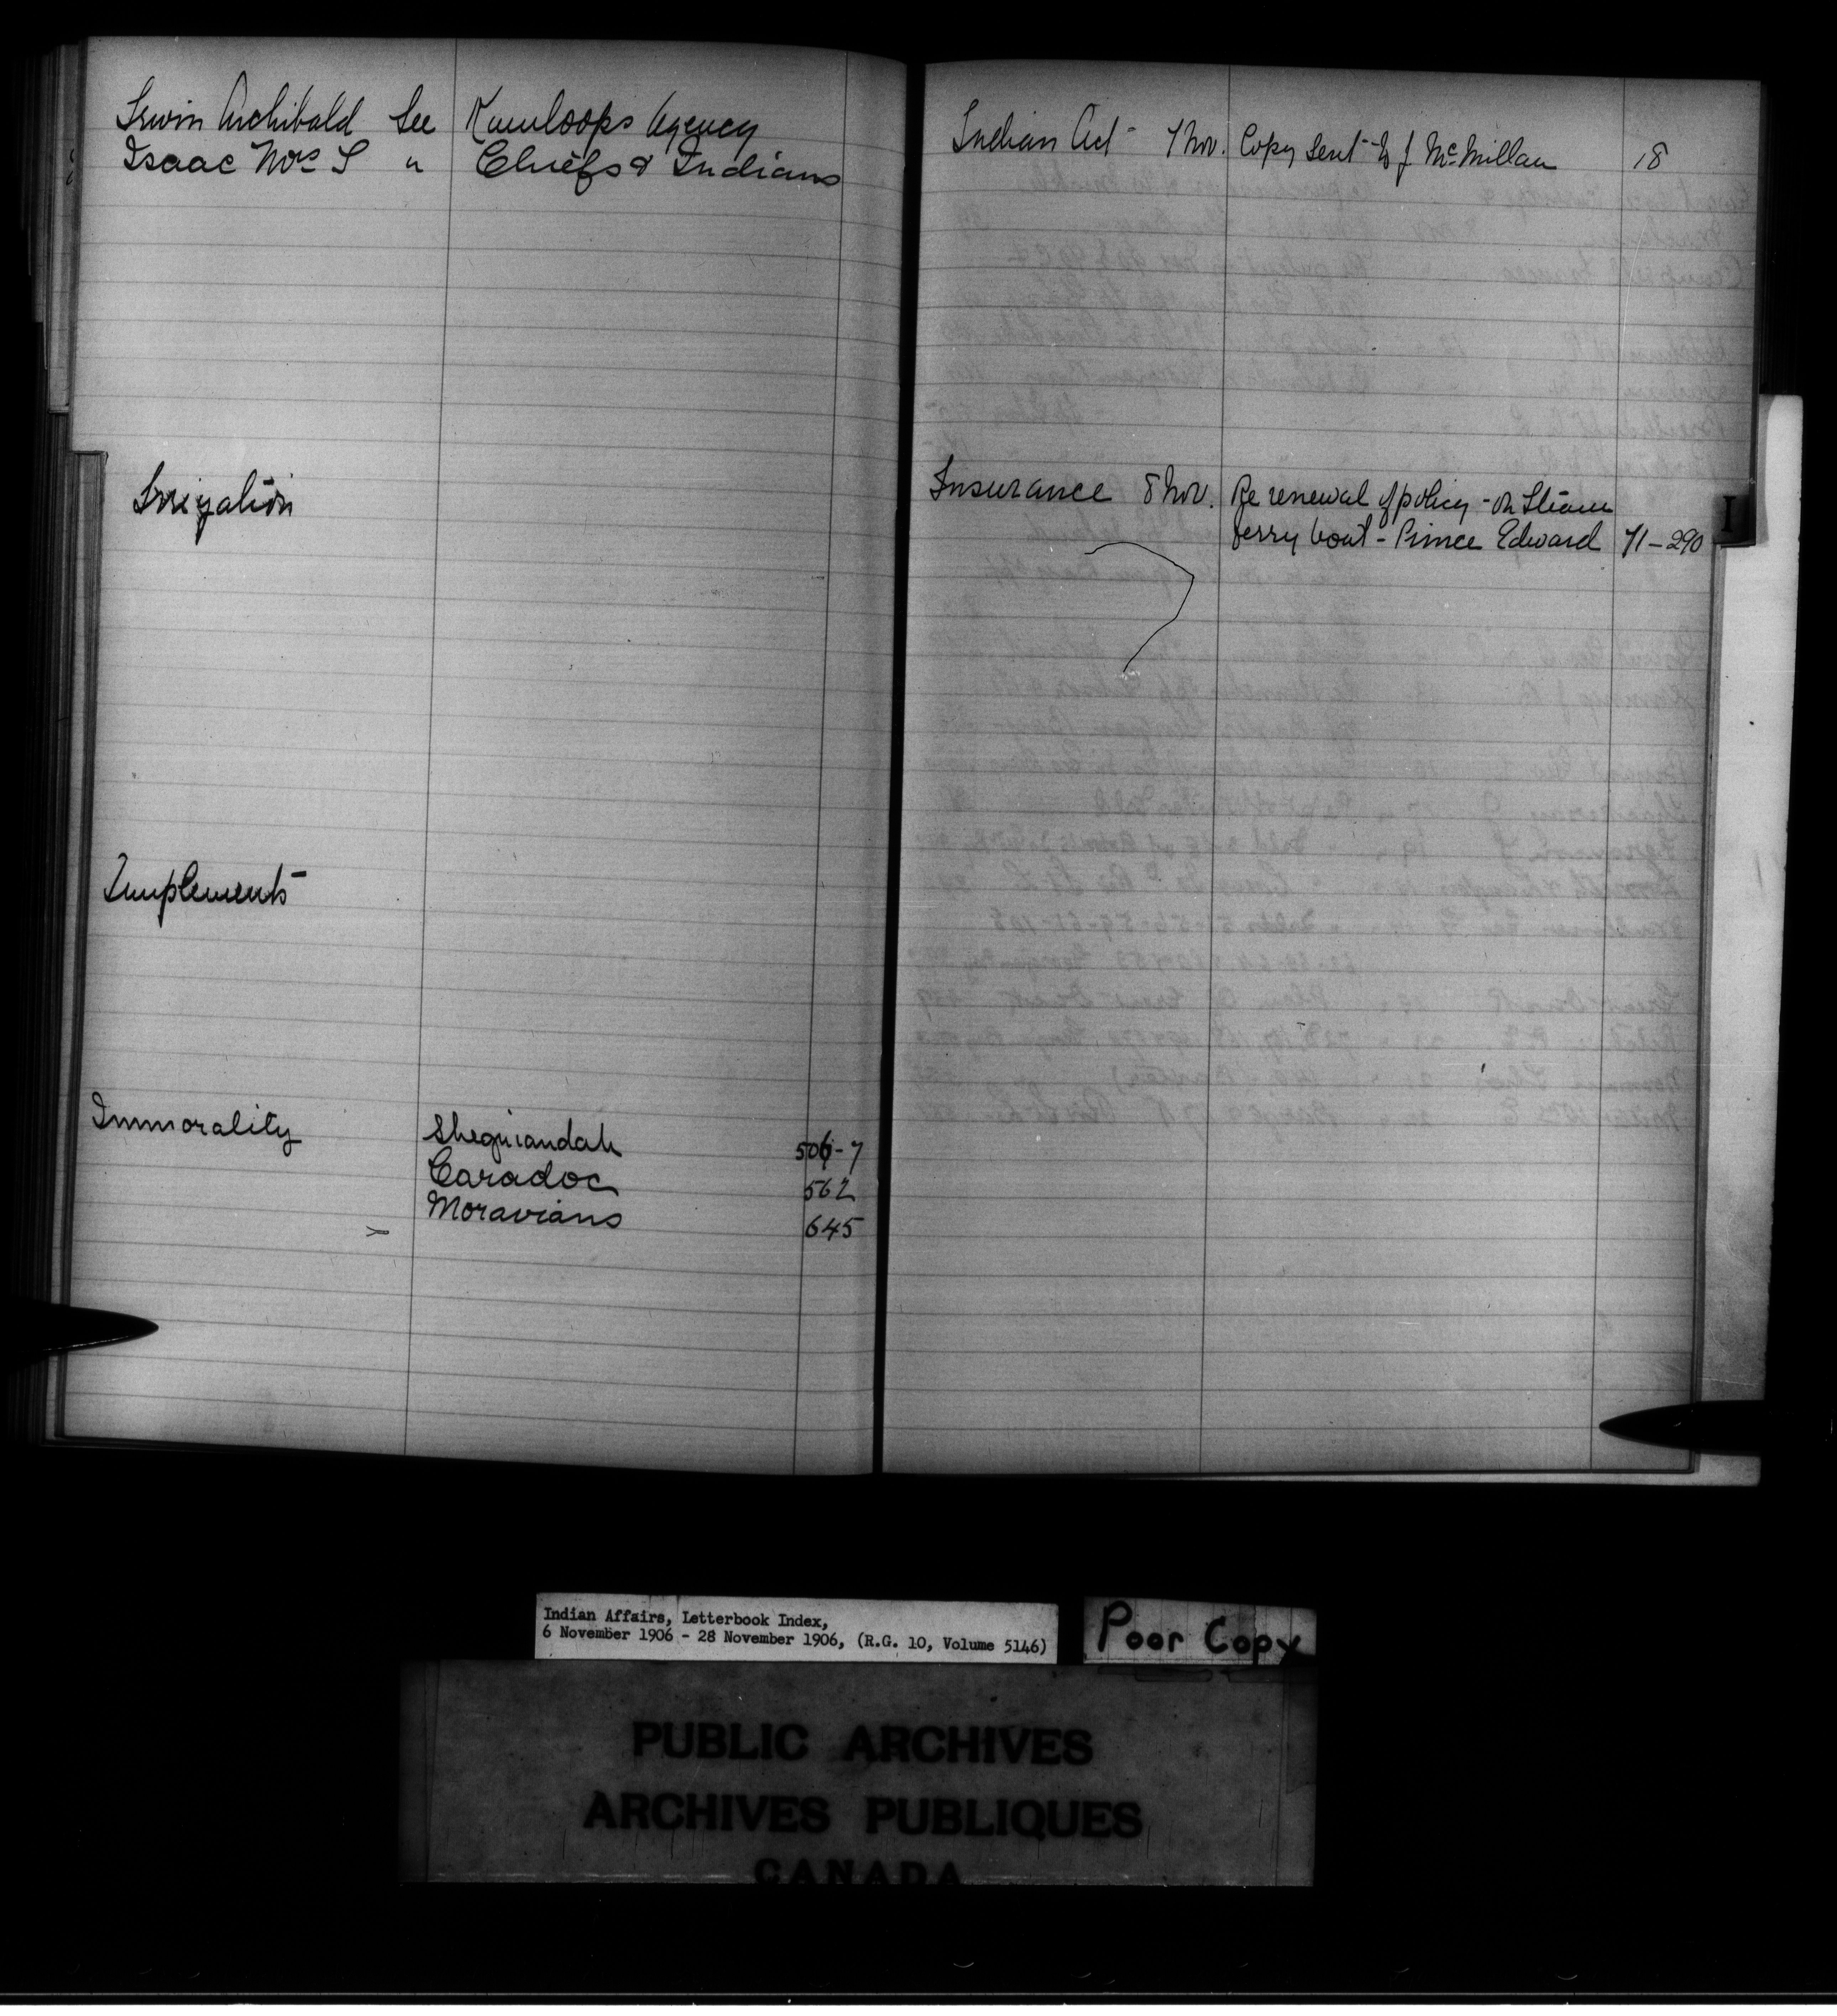 Irwin Archibald See Kamloops Agency
Isaac Mrs S " Chiefs & Indians
Irrigation
Implements
Immorality Sheguiandah 506-7
Caradoc 562
Moravians 645
Indian Act 7 Nov. Copy sent to J McMillan 18
Insurance 8 Nov. Re renewal of policy on Steam
ferry boat - Prince Edward 71-290
I
Indian Affairs, Letterbook Index,
6 November 1906 - 28 November 1906, (R.G. 10, Volume 5146)
Poor Copy
PUBLIC ARCHIVES
ARCHIVES PUBLIQUES
CANADA